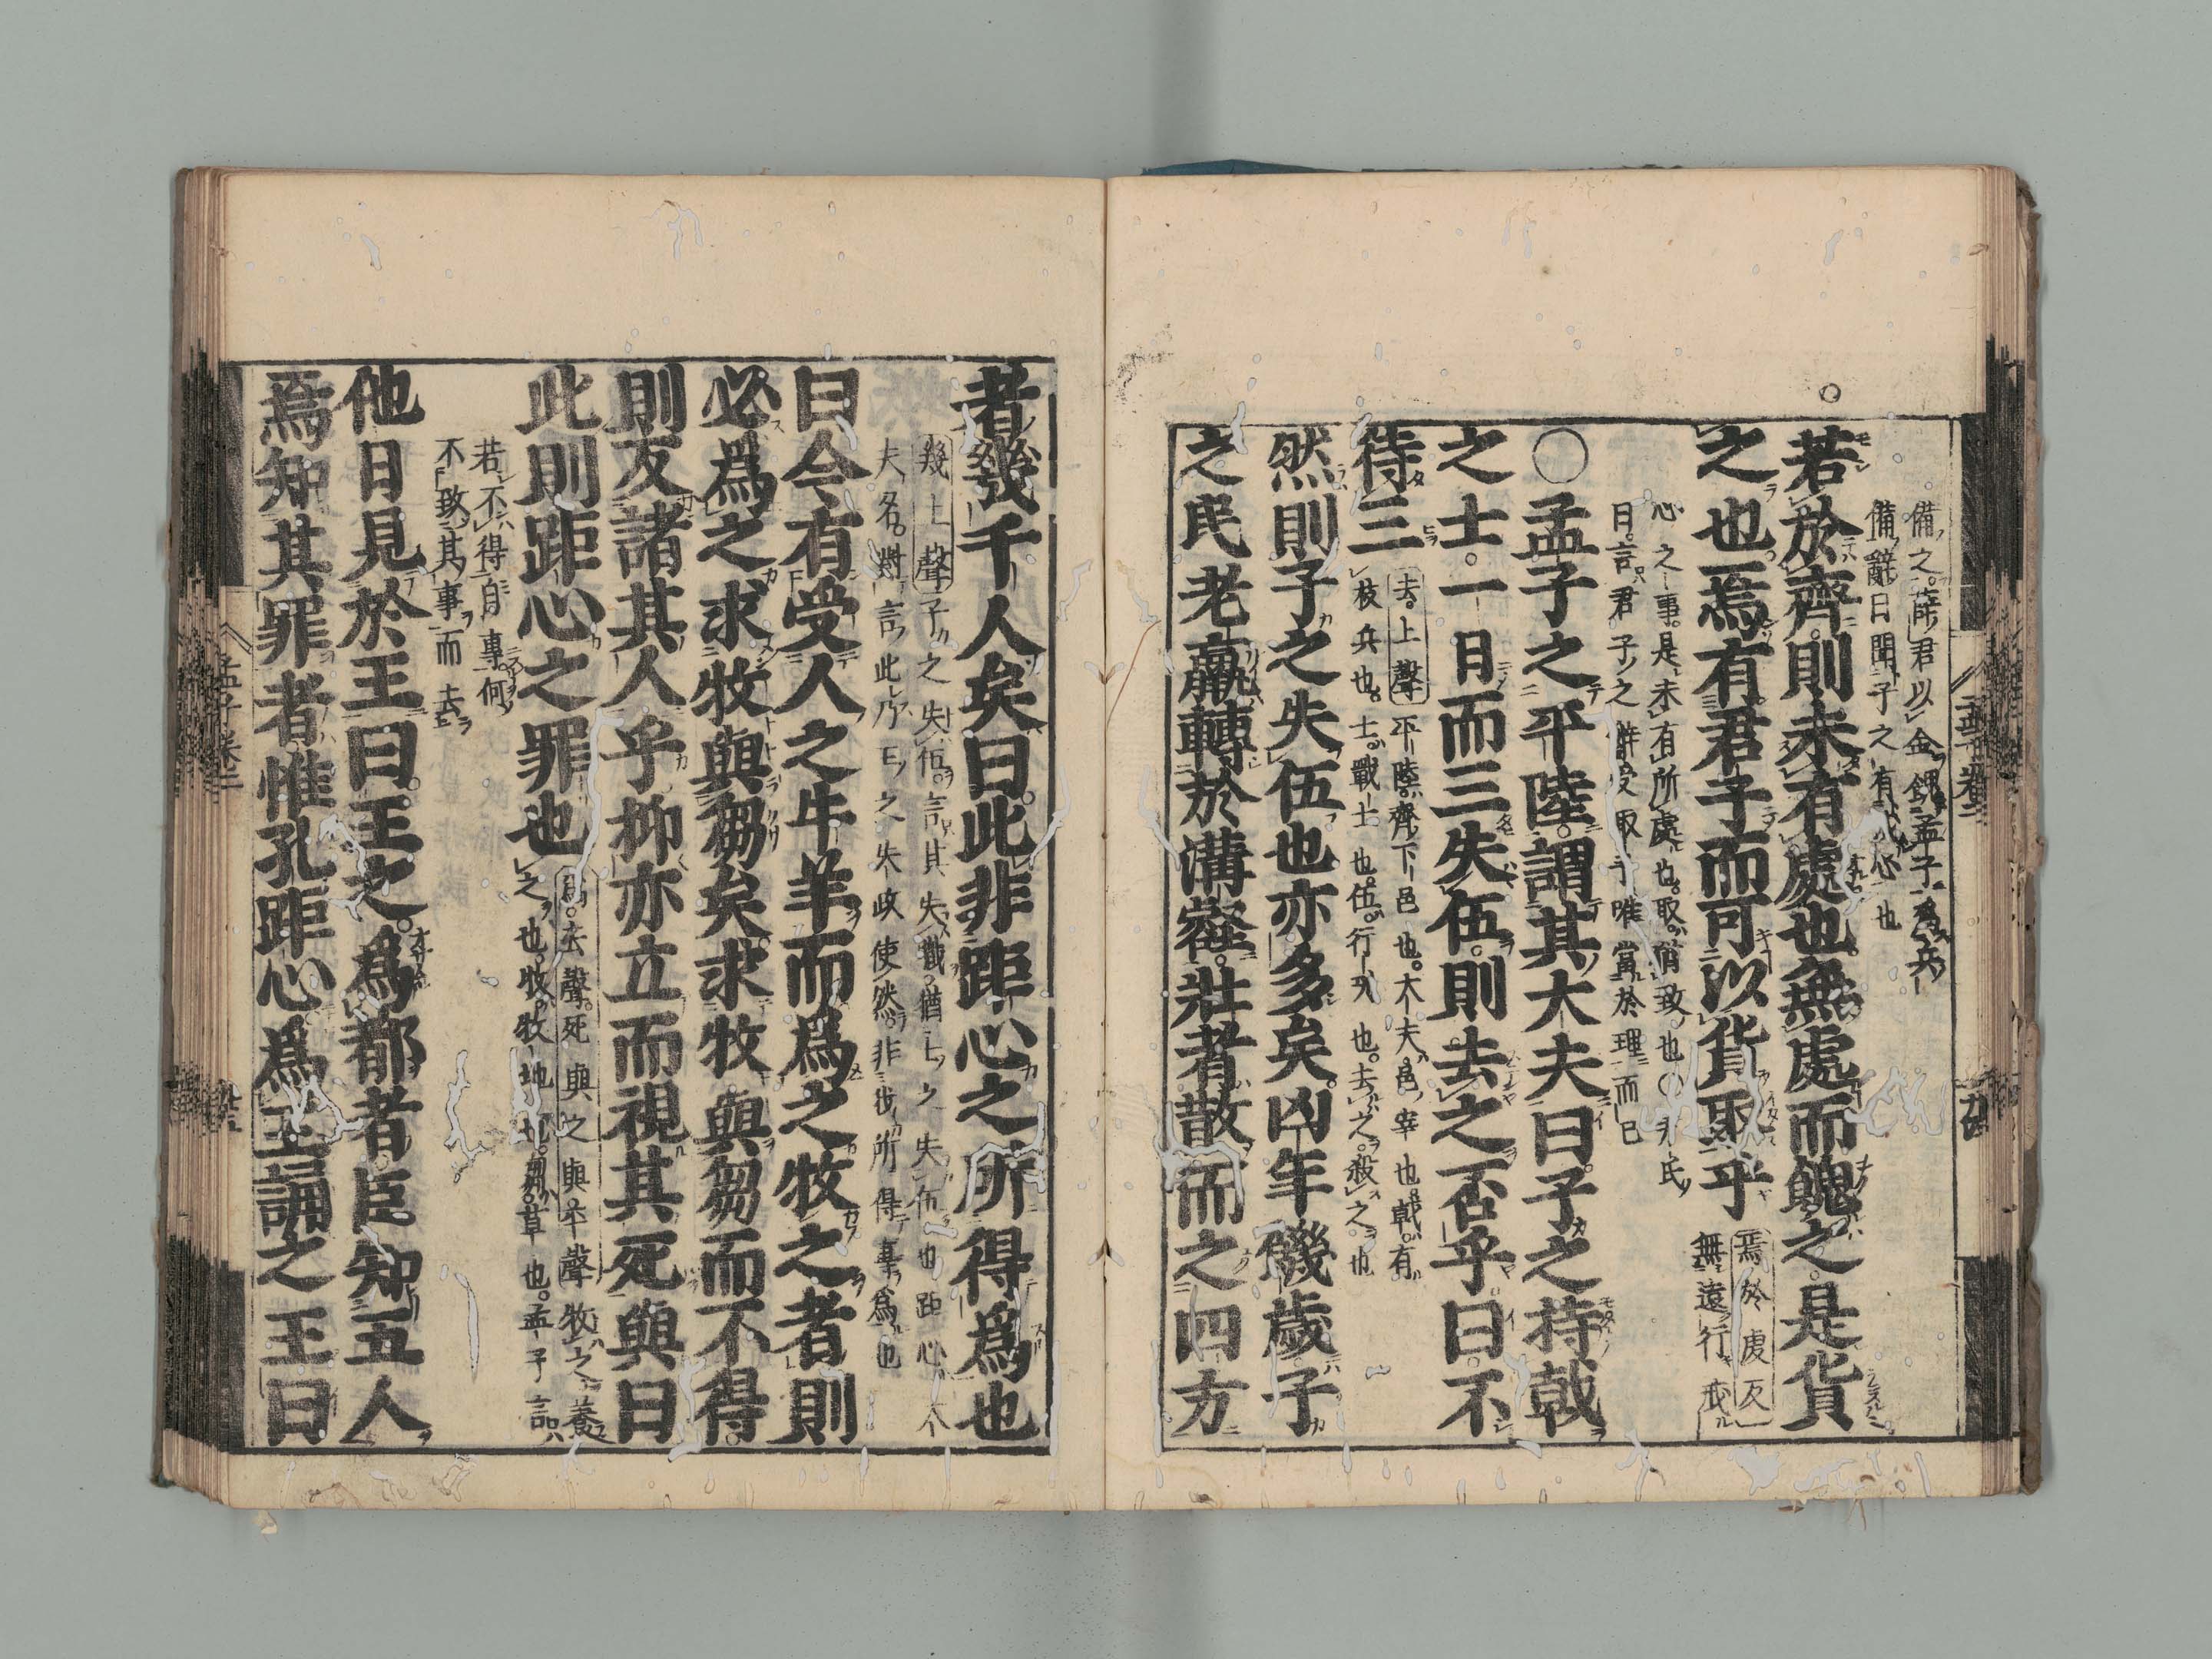 備之薛君以金餽孟子爲兵
備辭曰聞子之有戒心也
若於齊則未有處也無處而餽之是貨
之也焉有君子而可以貨取乎
焉於虔反
無遠行戒
心之事是未有所處也取猶致也○尹氏
曰言君子之辭受取予唯當於理而已
○孟子之平陸謂其大夫曰子之持戟
之士一日而三失伍則去之否乎曰不
待三
去上聲 平陸齊下邑也大夫邑宰也戟有
枝兵也士戰士也伍行列也去之殺之也
然則子之失伍也亦多矣凶年饑歲子
之民老羸轉於溝壑壯者散而之四方
者幾千人矣曰此非距心之所得爲也
幾上聲 子之失伍言其失職猶士之失伍也距心大
夫名對言此乃王之失政使然非我所得專爲也
曰今有受人之牛羊而爲之牧之者則
必爲之求牧與芻矣求牧與芻而不得
則反諸其人乎抑亦立而視其死與曰
此則距心之罪也
爲去聲死與之與平聲 牧之養
之也牧牧地也芻草也孟子言
若不得自專何
不致其事而去
他日見於王曰王之爲都者臣知五人
焉知其罪者惟孔距心爲王誦之王曰
孟子卷二
孟子卷二